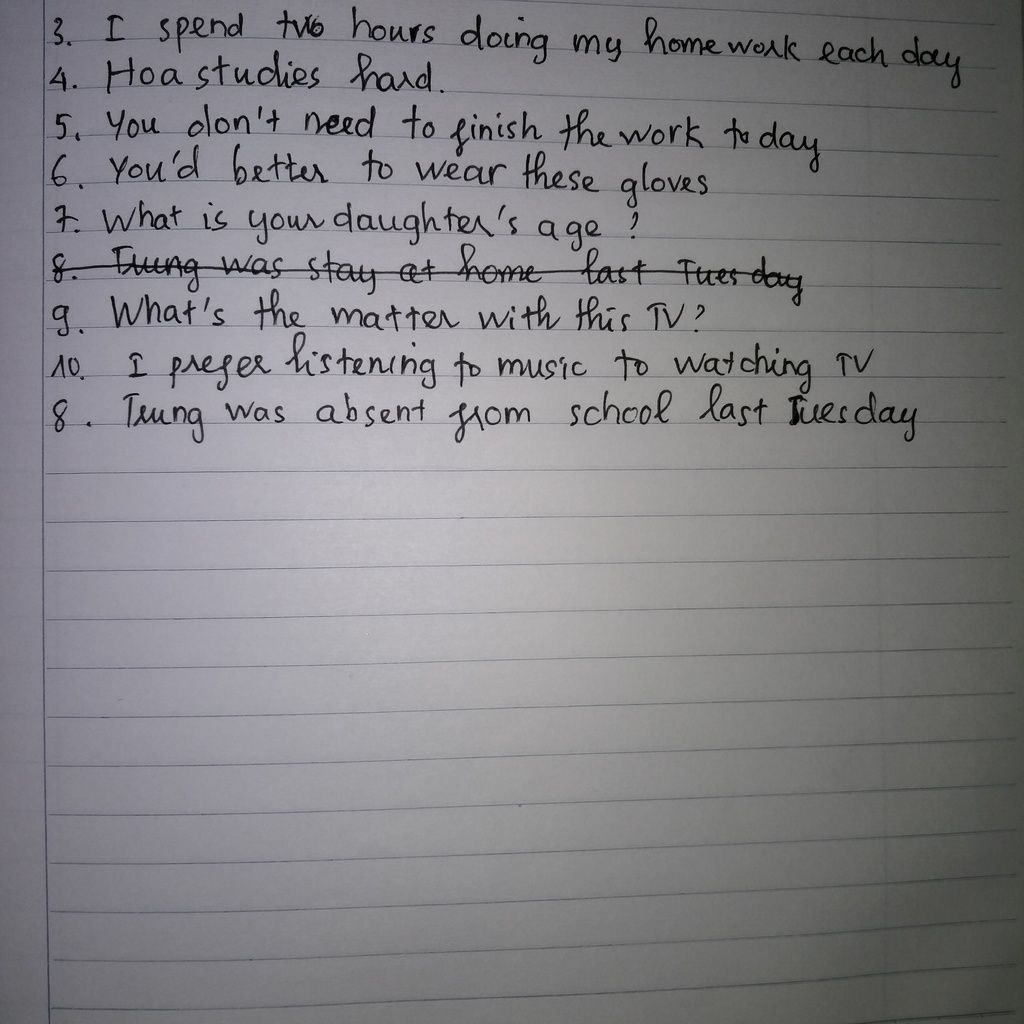 3. I spend two hours doing my homework each day
4. Hoa studies hard.
5. You don't need to finish the work today
6. You'd better to wear these gloves
7. What is your daughter's age ?
8. Trung was stay at home last Tuesday
9. What's the matter with this TV?
10. I prefer listening to music to watching TV
8. Trung was absent from school last Tuesday